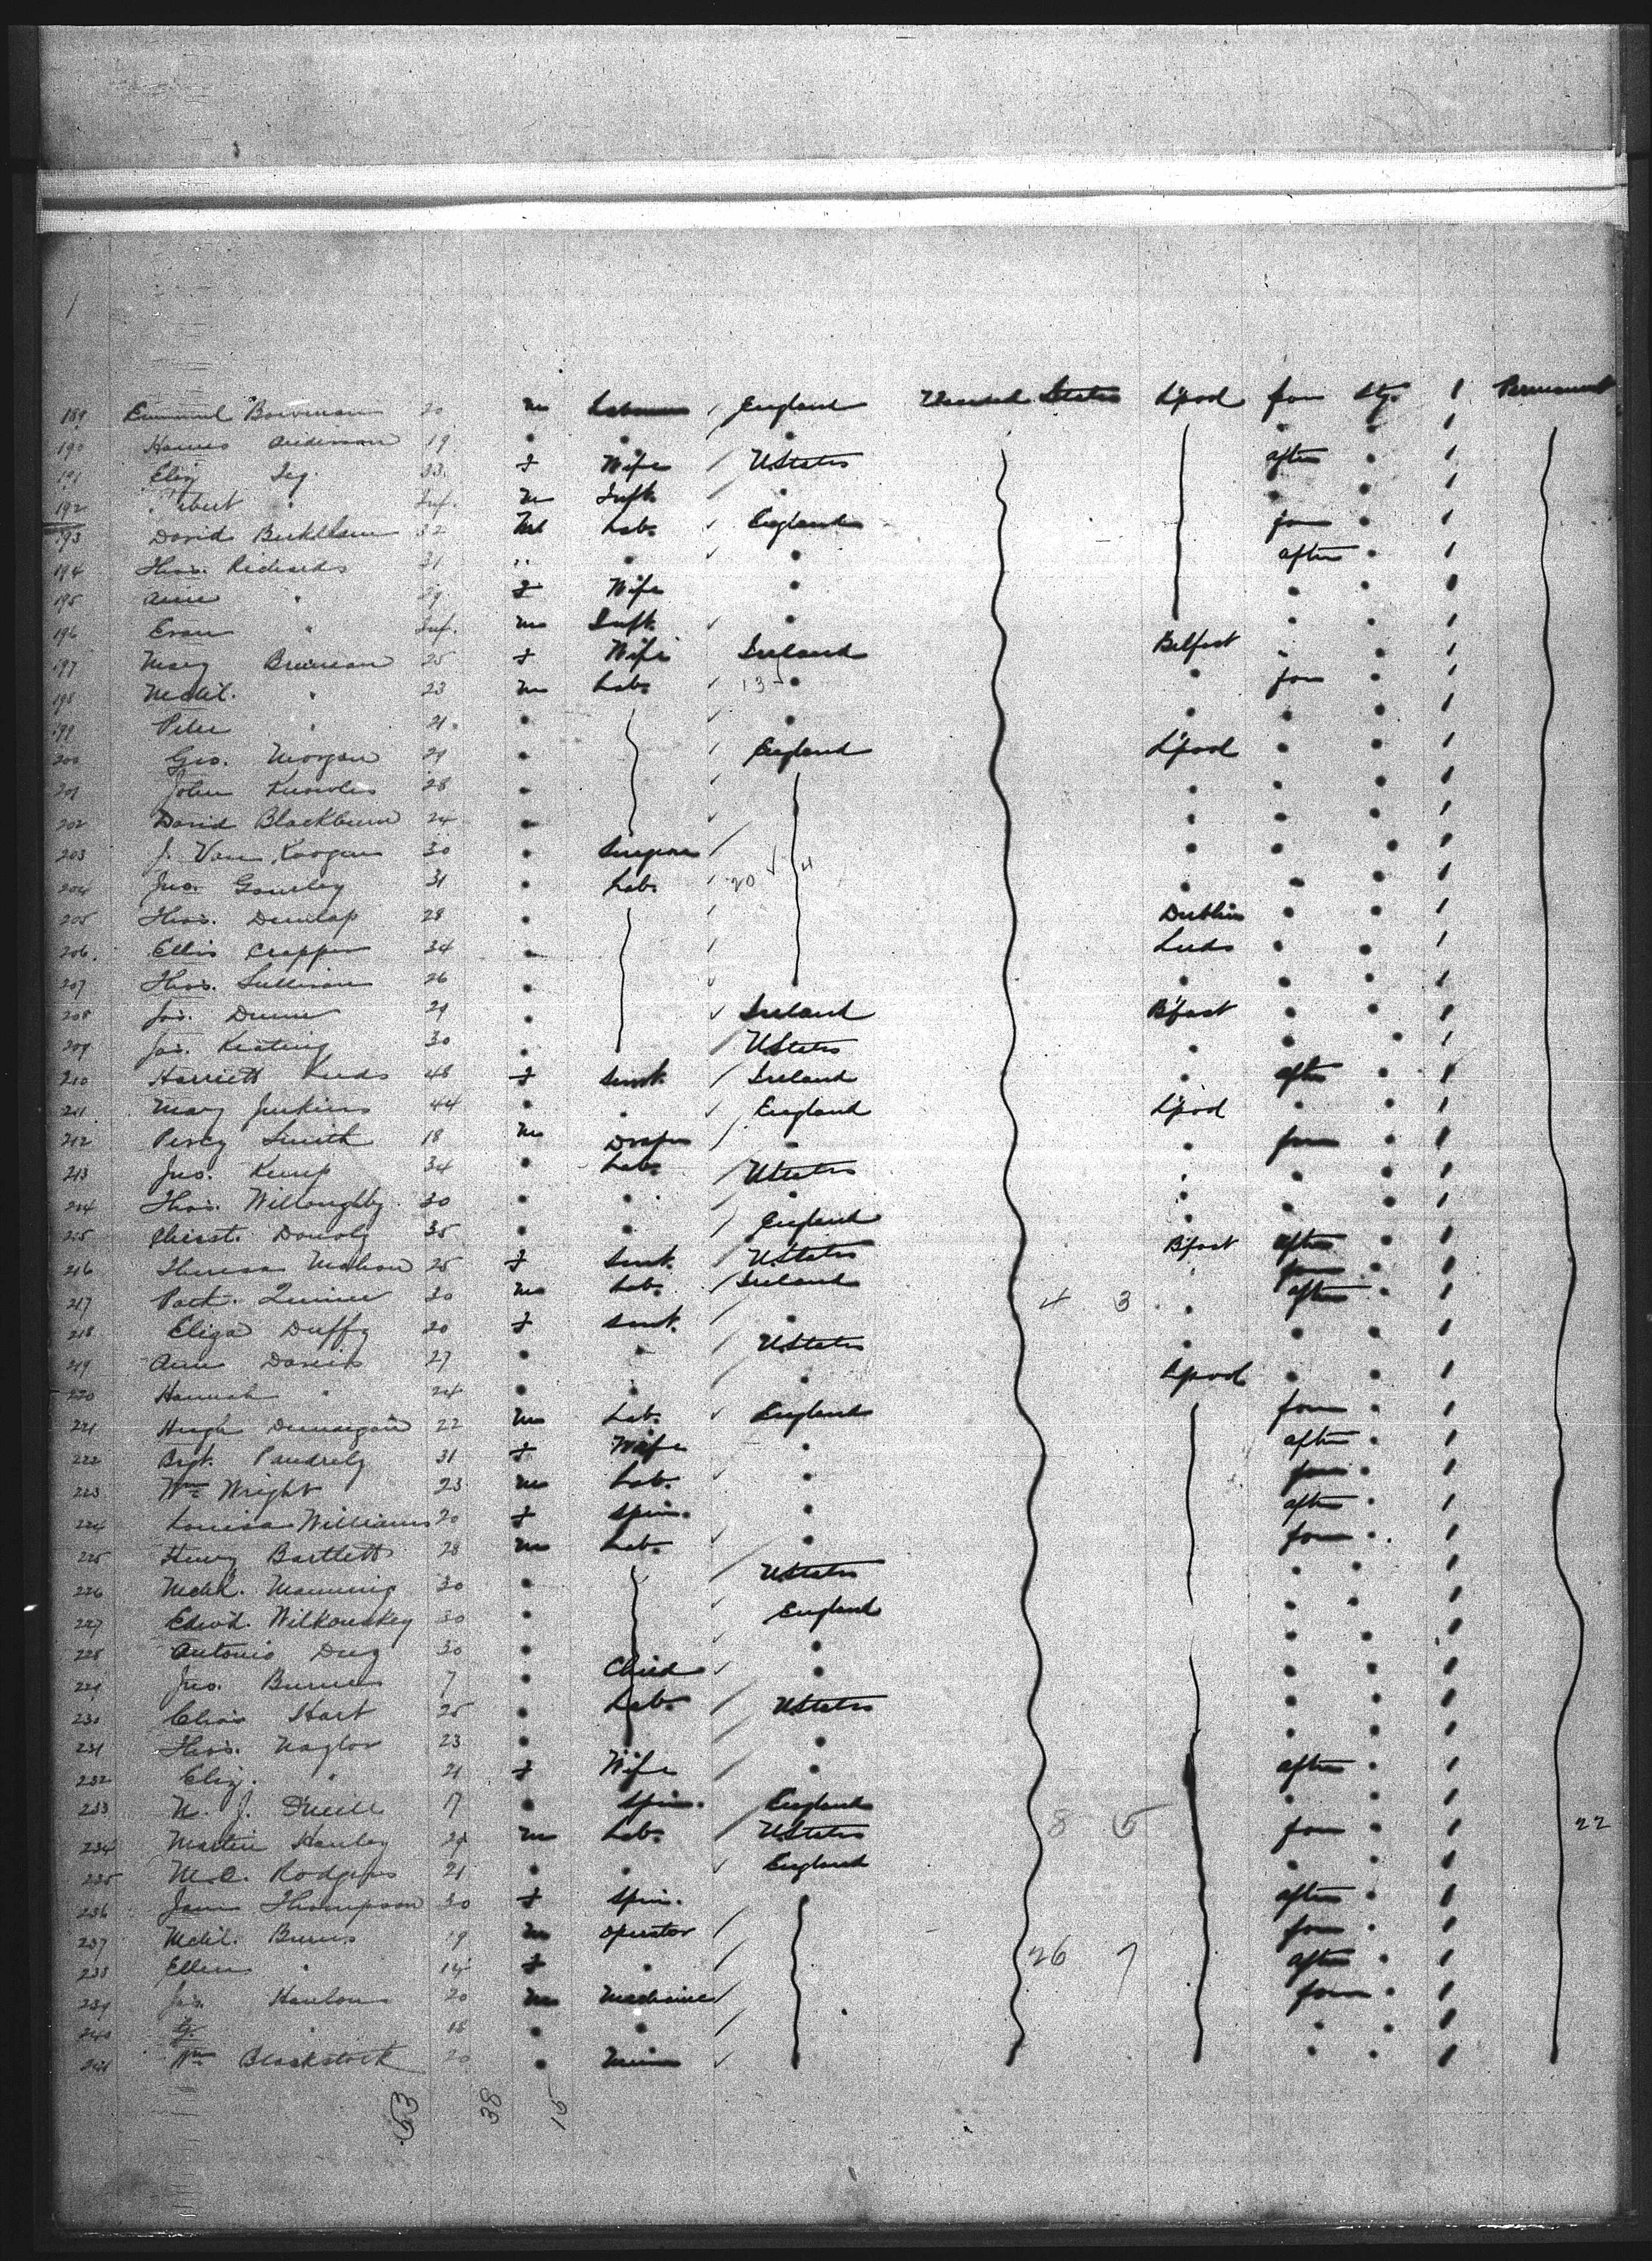 189 Bowman 20 m Laborer England United States L'pool for Stg. 1 Permanent
190 Anderson 19 " " " " " 1
191 Eliz 33 f Wife UStates after " 1
192 " Inf. m Inft. " " " 1
193 David 32 M Lab. England for " 1
194 Thos. Richards 31 " " " after " 1
195 Ann " 29 f Wife " " " 1
196 Evan " Inf. m Inft. " " " 1
197 Mary Brennan 25 f Wife Ireland Belfast " " 1
198 Michl. " 23 m Lab. 13 " " for " 1
199 Peter " 21 " " " " " 1
200 Geo. Morgan 21 " England L'pool " " 1
201 John Knowles 28 " " " " 1
202 David Blackburn 24 " " " " 1
203 J. Van Koogan 30 " Surgeon " " " 1
204 Jno. Gourley 31 " Lab. 20 4 " " " 1
205 Thos. Dunlap 28 " Dublin " " 1
206 Ellis Crapper 34 " Leeds " " 1
207 Thos. Sullivan 26 " " " " 1
208 Jas. Dunn 29 " Ireland B'fast " " 1
209 Jas. Keating 30 " UStates " " " 1
210 Harriett Leeds 48 f Servt. Ireland " after " 1
211 Mary Jenkins 44 " " England L'pool " " 1
212 Percy Smith 18 m Draper " " for " 1
213 Jno. Kemp 34 " Lab. UStates " " " 1
214 Thos. Willoughby 30 " " " " " " 1
215 Christ. Donoly 35 " " England " " " 1
216 Theresa Mahon 25 f Servt. UStates B'fast after " 1
217 Patk. Quinn 30 m Lab. Ireland " for " 1
218 Eliza Duffy 20 f Servt. " 4 3 " after " 1
219 Ann Davis 27 " " UStates " " " 1
220 Hannah " 24 " " " L'pool " " 1
221 Hugh 22 m Lab. England for " 1
222 Bgt. 31 f Wife " after " 1
223 Wm Wright 23 m Lab. " for " 1
224 Louisa Williams 20 f Spin. " after " 1
225 Henry Bartlett 28 m Lab. " for " 1
226 Michl. Manning 30 " UStates " " 1
227 Edwd. Wilkouskey 30 " England " " 1
228 Antonio 30 " " " " 1
229 Jno. Burns 7 " Child " " " 1
230 Chas Hart 25 " Lab. UStates " " 1
231 Thos. Naylor 23 " " " " 1
232 Eliz. " 21 f Wife " after " 1
233 J. 17 " Spin. England " " 1
234 Martin Hanley 24 m Lab. UStates 8 5 for " 1 22
235 M.C. Rodgers 21 " " England " " 1
236 Jane Thompson 30 f Spin. after " 1
237 Michl. Burns 19 m operator for " 1
238 Ellen " 14 f " 26 7 after " 1
239 Jas. Hanlon 20 m Machinest for " 1
240 " 18 " " " " 1
241 Wm Blackstock 20 " " " 1
53 38 15